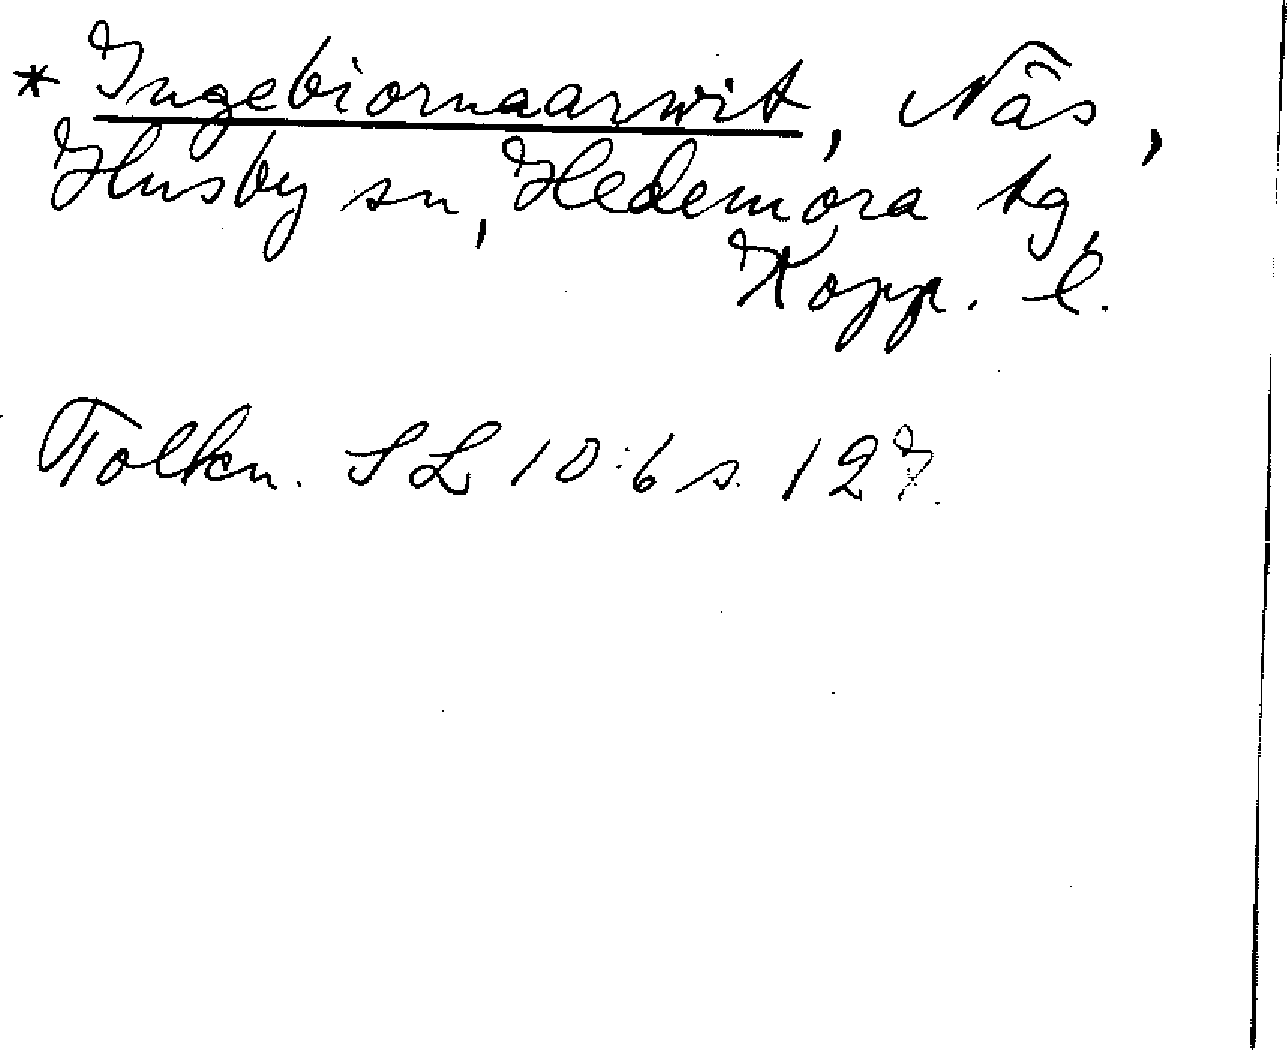 * Ingebiornaarwit, Näs,
Husby sn, Hedemora tg,
Kopp. l.
Tolkn. SL 10:6 s. 127.